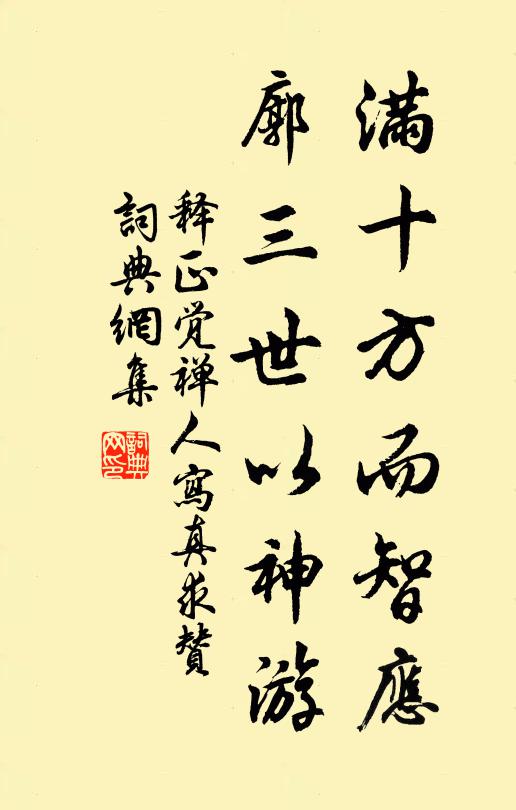 滿十方而智應
廓三世以神游
释正覺禅人寫真求贊
詞典網集
詞典網印